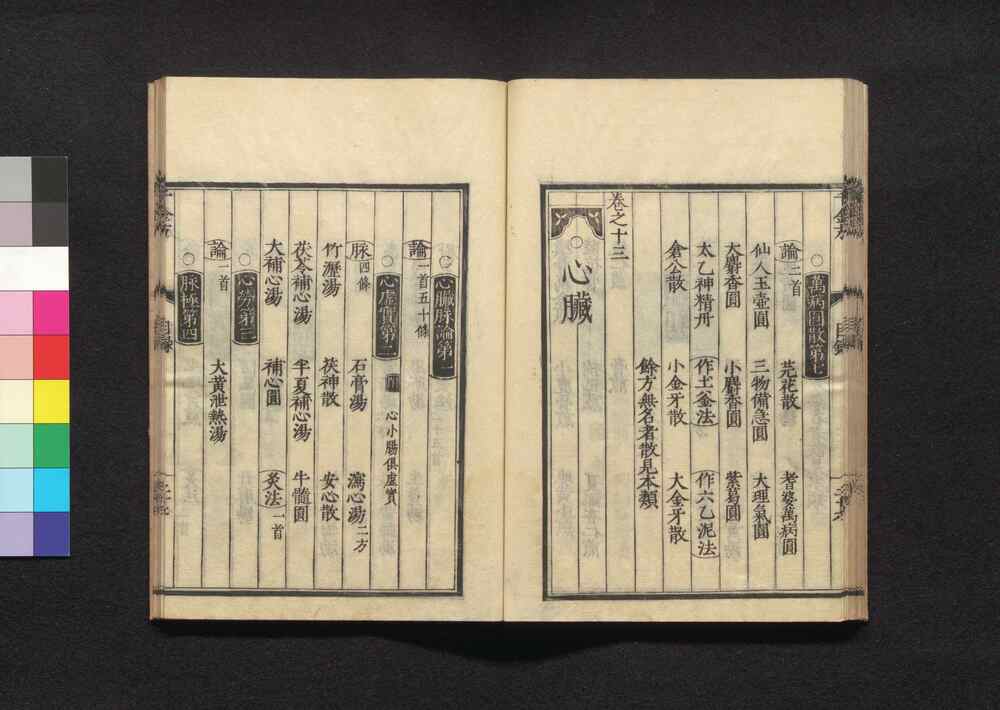 萬病圓散第七
論二首 芫花散 耆婆萬病圓
仙人玉壺圓 三物備急圓 大理氣圓
大麝香圓 小麝香圓 紫葛圓
太乙神精丹 作土釜法 作六乙泥法
倉公散 小金牙散 大金牙散
餘方無名者散見本類
卷之十三
心臟
心臟脉論第一
論一首五十條
心虛實第二 附 心小腸俱虛實
脉四條 石膏湯 瀉心湯二方
竹瀝湯 茯神散 安心散
茯苓補心湯 半夏補心湯 牛髓圓
大補心湯 補心圓 灸法一首
心勞第三
論一首 大黃泄熱湯
脉極第四